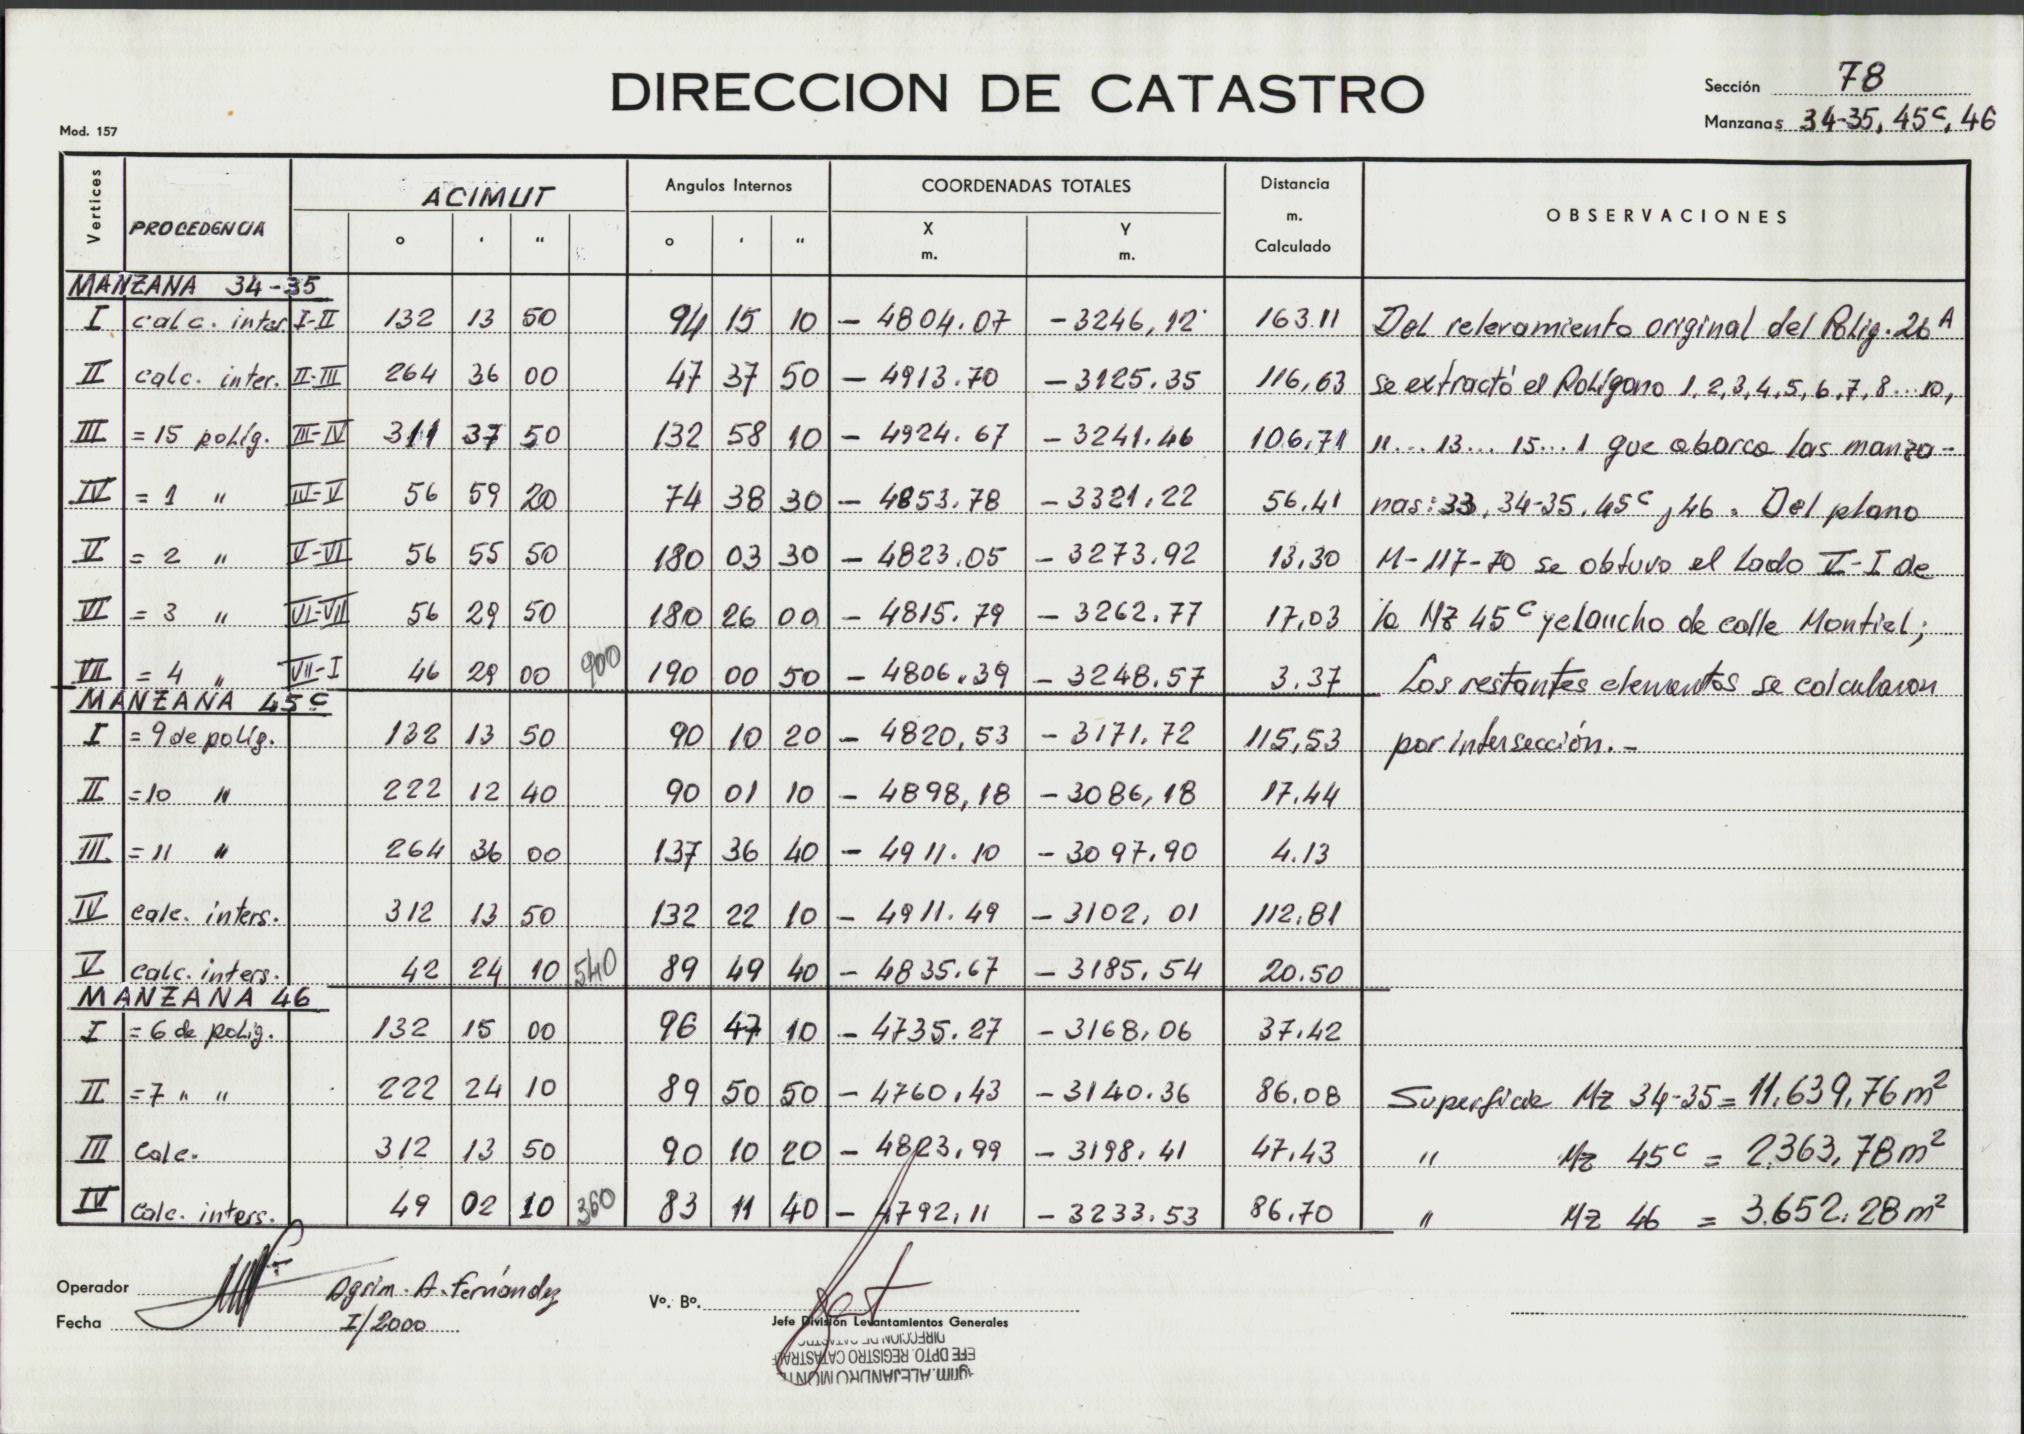 DIRECCION DE CATASTRO
Sección 78
Manzanas 34-35, 45c, 46
Mod. 157
Vertices PROCEDENCIA ACIMUT Angulos Internos COORDENADAS TOTALES Distancia m. Calculado OBSERVACIONES
° ' " ° ' " X m. Y m.
MANZANA 34-35
I calc. inter. I-II 132 13 50 94 15 10 - 4804.07 - 3246,12 163.11 Del relevamiento original del Polig. 26 A
II calc. inter. II-III 264 36 00 47 37 50 - 4913.70 - 3125.35 116,63 se extractó el Polígono 1,2,3,4,5,6,7,8...10,
III = 15 políg. III-IV 311 37 50 132 58 10 - 4924.67 - 3241.46 106,71 11...13...15...1 que abarca las manza-
IV = 1 " IV-V 56 59 20 74 38 30 - 4853.78 - 3321,22 56.41 nas: 33, 34-35, 45c, 46. Del plano
V = 2 " V-VI 56 55 50 180 03 30 - 4823.05 - 3273.92 13,30 M-117-70 se obtuvo el lado V-I de
VI = 3 " VI-VII 56 29 50 180 26 00 - 4815.79 - 3262.77 17,03 la Mz 45c y el ancho de calle Montiel;
VII = 4 " VII-I 46 29 00 900 190 00 50 - 4806.39 - 3248.57 3.37 Los restantes elementos se calcularon
MANZANA 45c
I = 9 de políg. 132 13 50 90 10 20 - 4820,53 - 3171.72 115,53 por intersección.-
II = 10 " 222 12 40 90 01 10 - 4898,18 - 3086,18 17.44
III = 11 " 264 36 00 137 36 40 - 4911.10 - 3097.90 4.13
IV calc. inters. 312 13 50 132 22 10 - 4911.49 - 3102,01 112.81
V calc. inters. 42 24 10 540 89 49 40 - 4835.67 - 3185,54 20.50
MANZANA 46
I = 6 de polig. 132 15 00 96 47 10 - 4735.27 - 3168,06 37.42
II = 7 " " 222 24 10 89 50 50 - 4760,43 - 3140.36 86.08 Superficie Mz 34-35 = 11.639,76 m²
III calc. 312 13 50 90 10 20 - 4823,99 - 3198.41 47.43 " Mz 45c = 2.363,78 m²
IV calc. inters. 49 02 10 360 83 11 40 - 4792,11 - 3233.53 86.70 " Mz 46 = 3.652.28 m²
Operador Agrim. A. Fernández
Fecha I/2000
Vo. Bo.
Jefe División Levantamientos Generales
Agrim. ALEJANDRO MONTE
JEFE DPTO. REGISTRO CATASTRAL
DIRECCION DE CATASTRO